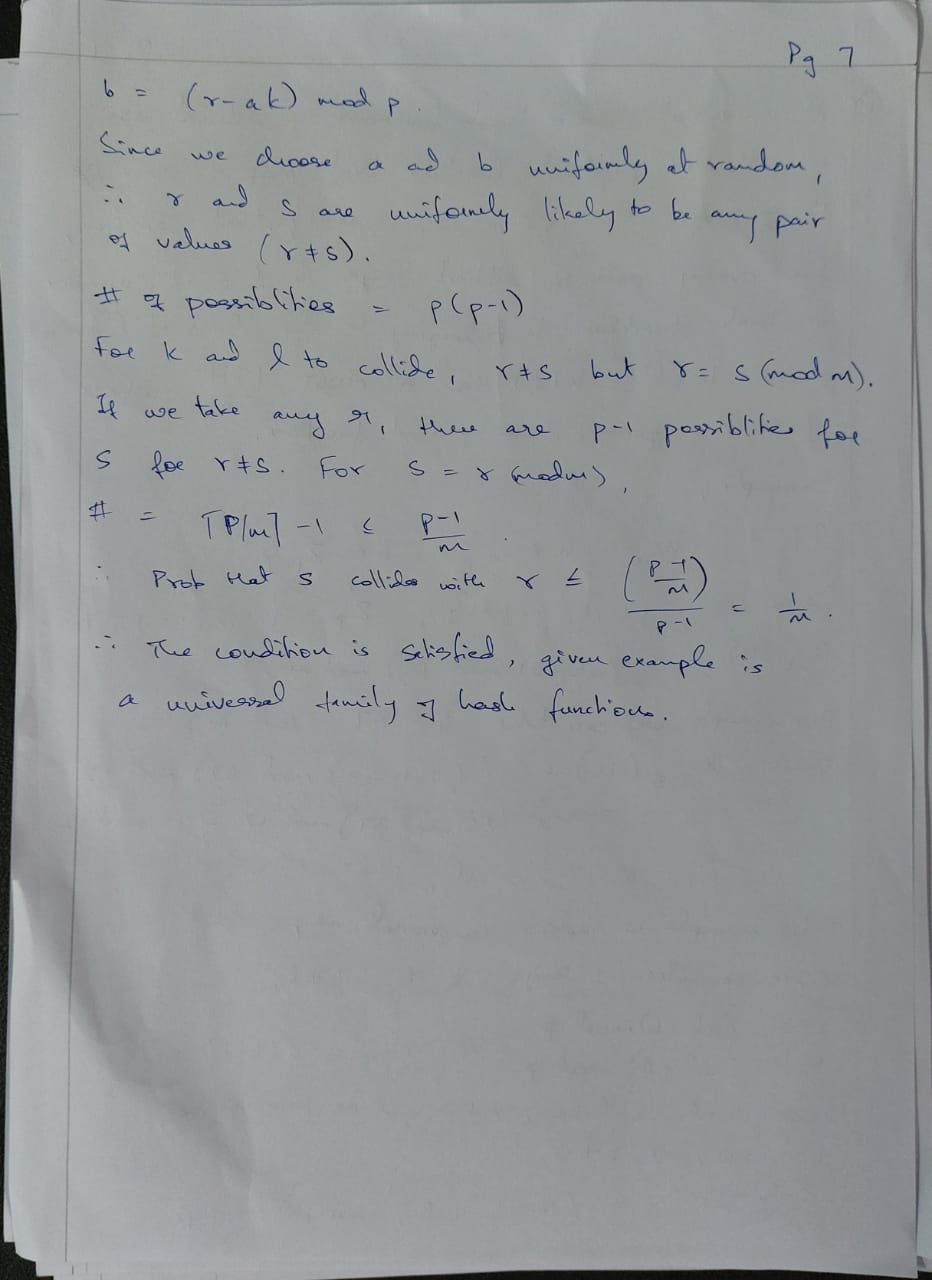 Pg 7
b = (r-ak) mod p.
Since we choose a ad b uniformly at random,
∴ r and s are uniformly likely to be any pair
of values (r≠s).
# of possiblities = p(p-1)
For k and l to collide, r≠s but r= s (mod m).
If we take any r, there are p-1 possiblities for
s for r≠s. For s = r (mod m),
# = ⌈P/m⌉ -1 ≤ (p-1)/m.
∴ Prob that s collides with r ≤ ((p-1)/m)/(p-1) = 1/m.
∴ The condition is satisfied, given example is
a universal family of hash functions.